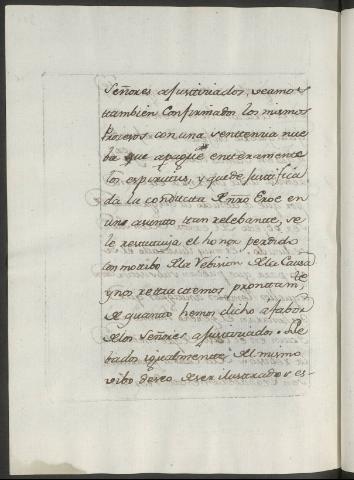 Señores ajusticiados, veamos
ttambien Confirmados los mismos
Procesos con una senttenzia nue
ba que apague entteramente
los espiritus, y quede justifica
da la conductta d nro Eroe en
un asuntto ttan relebante, se
le resttituya el honor perdido
con motibo d la Vebision d la Causa
y nos rettracttemos pronttamte
d quantto hemos dicho a fabor
d los Señores ajusticiados. Lle
bados igualmente del mismo
vibo deseo d ser ilustrados es-